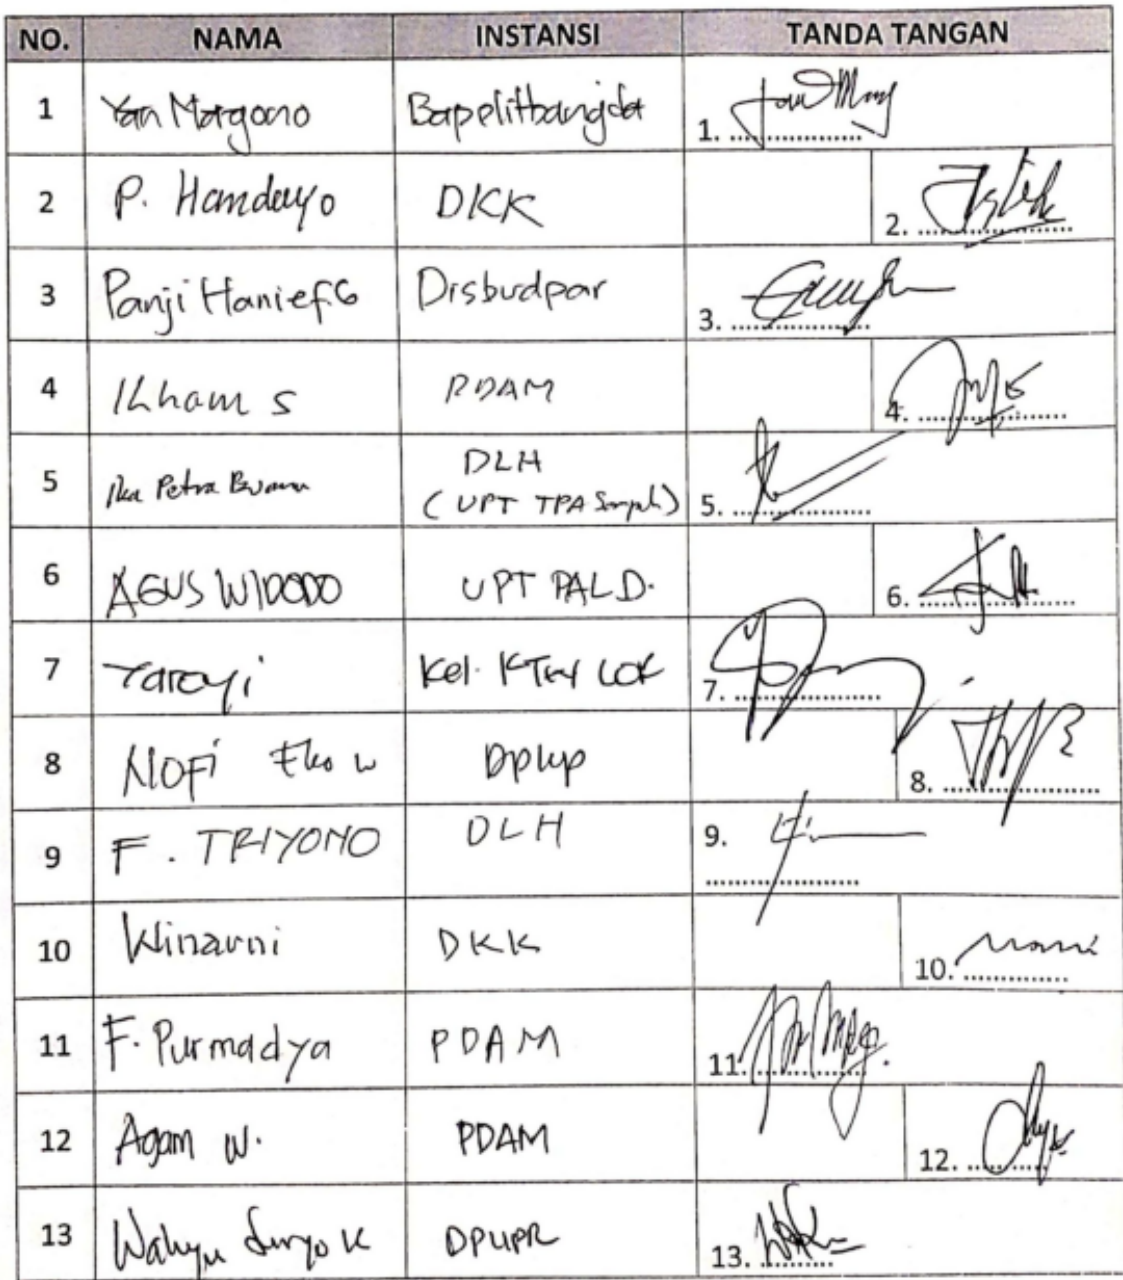 NO. NAMA INSTANSI TANDA TANGAN
1 Yan Margono Bapelitbangda 1. ................
2 P. Handayo DKK 2. ................
3 Panji Hanief G Disbudpar 3. ................
4 Ilham S PDAM 4. ................
5 Ika Petra DLH 5. ................
(UPT TPA
6 AGUS WIDODO UPT PALD. 6. ................
7 Kel. 7. ................
8 Nofi Eko W 8. ................
9 F. TRIYONO DLH 9. ................
10 Winarni DKK 10. .............
11 F. Purmadya PDAM 11. .............
12 Agam W. PDAM 12. .............
13 Wahyu Suryo K DPUPR 13. .............